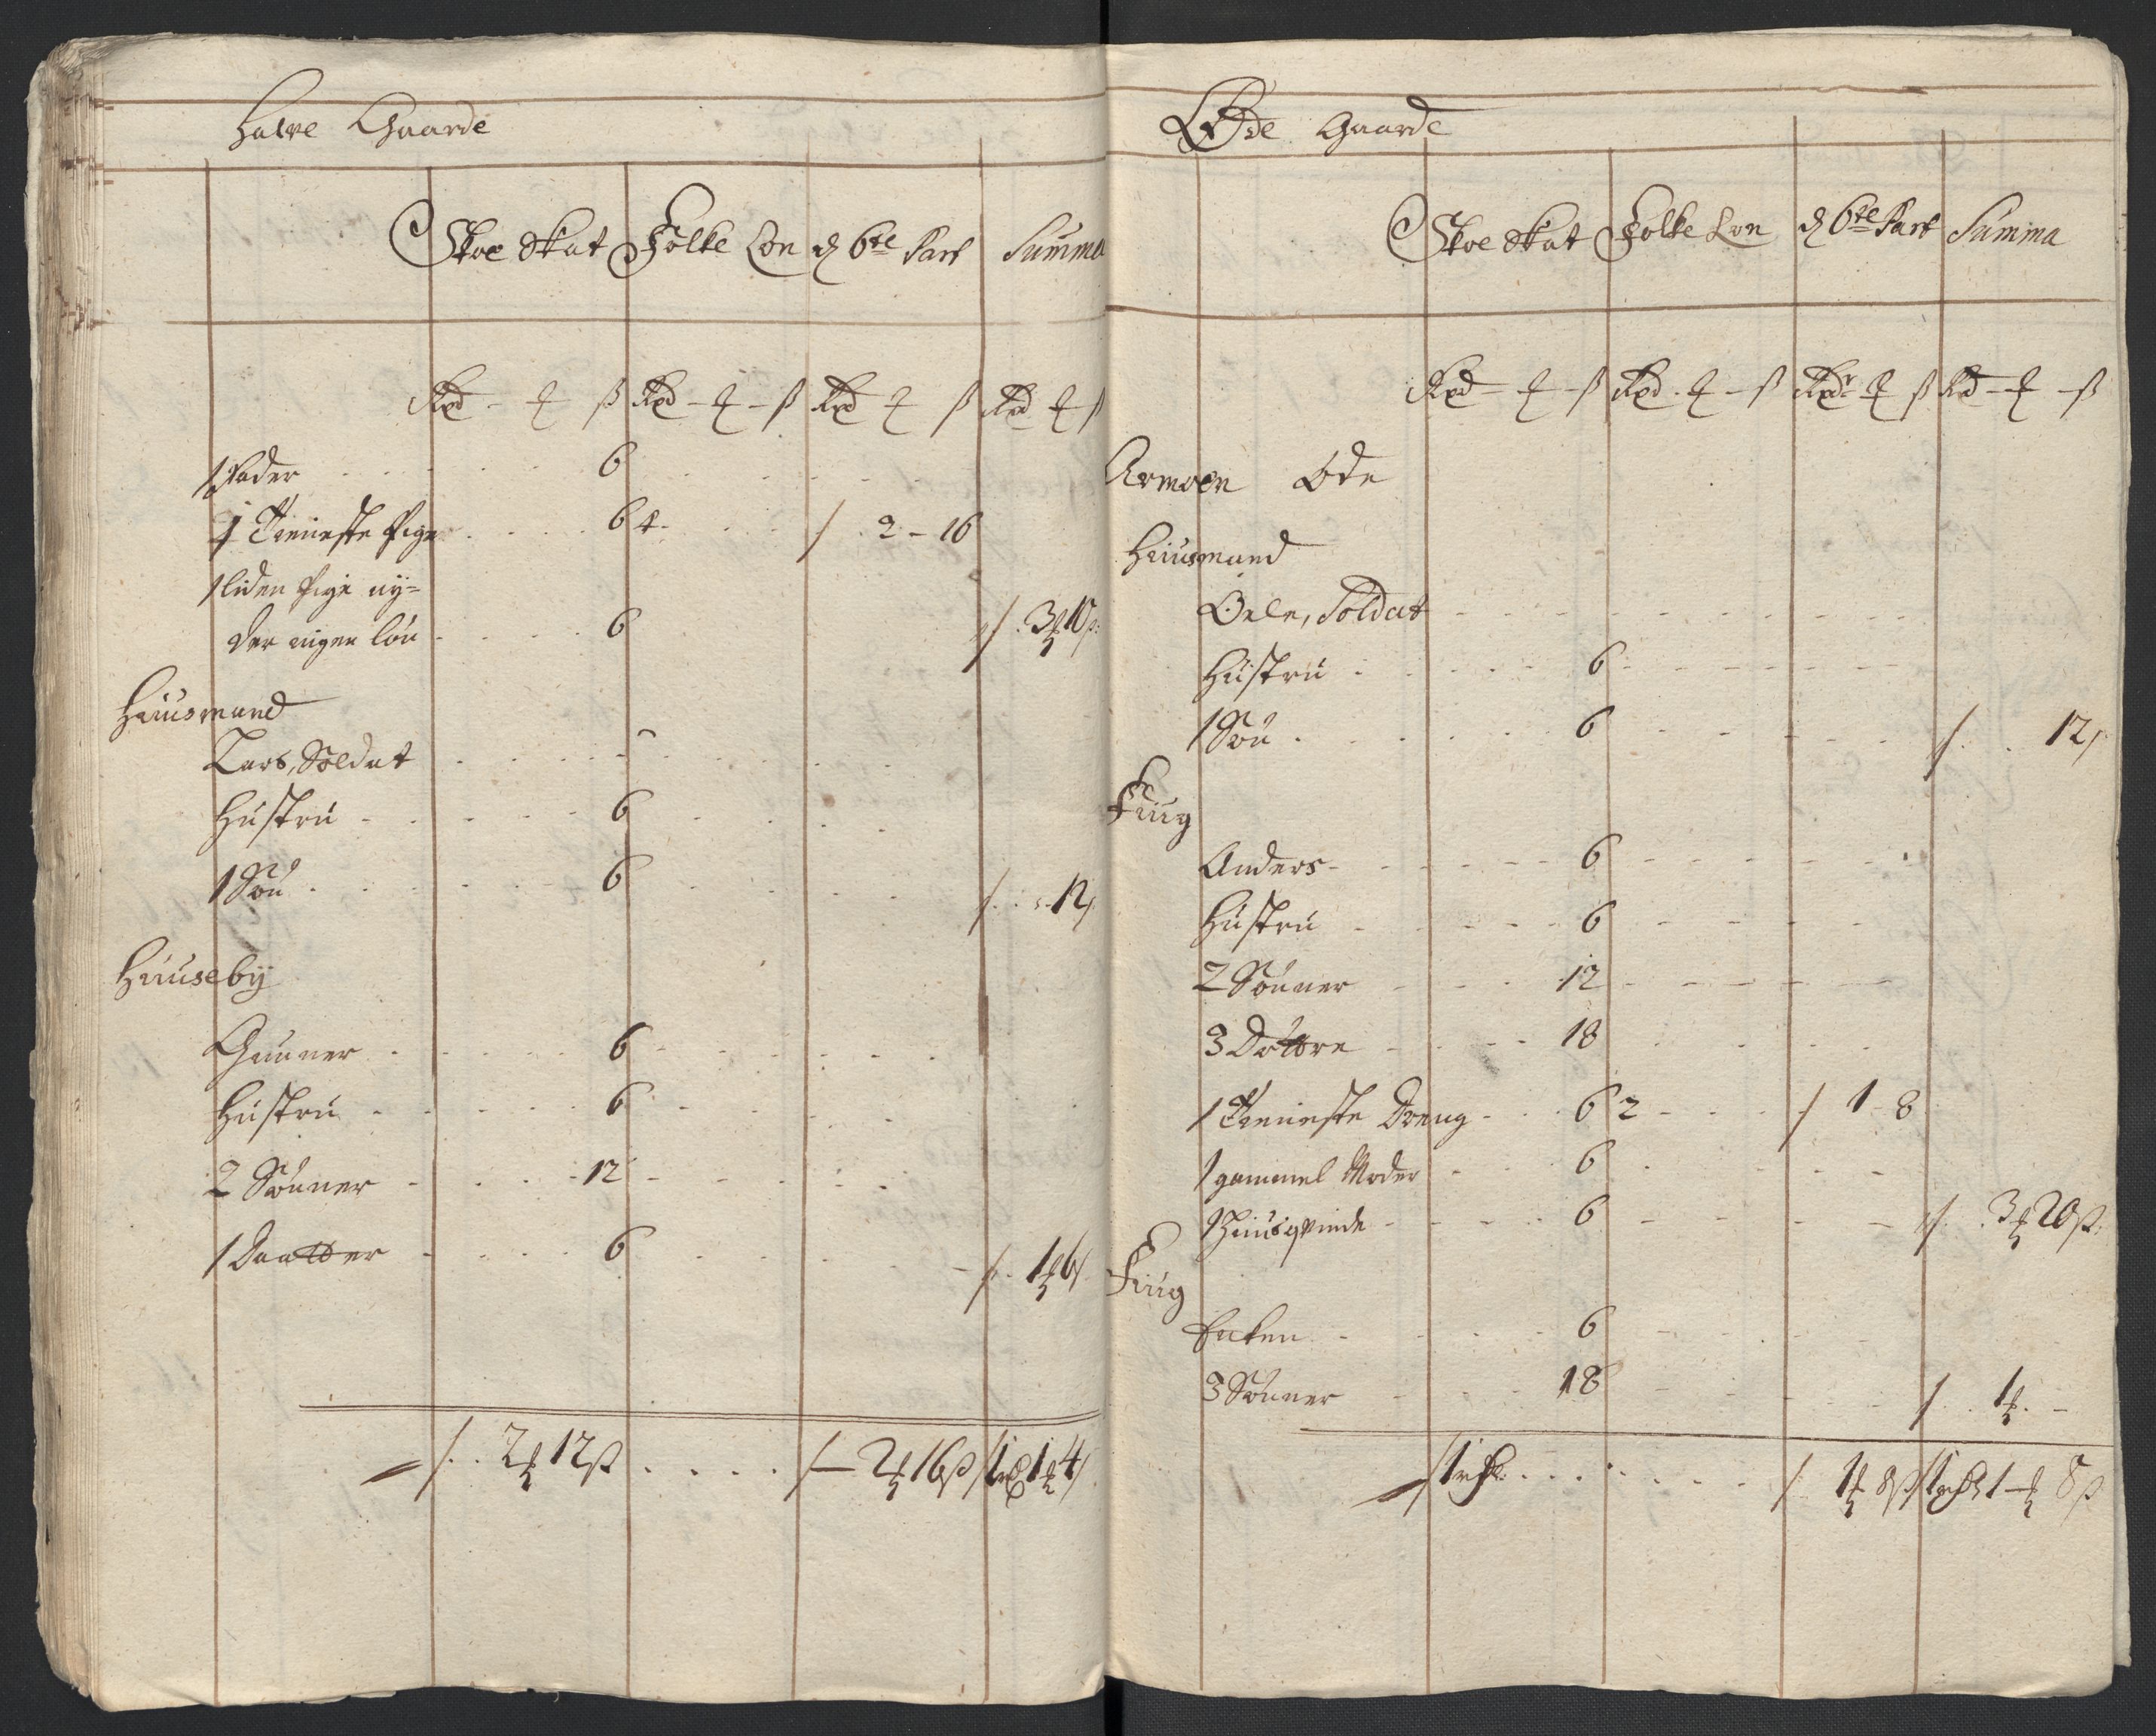 Halve Gaarde
Skoe Skat Folke Løn d 6te Part Summa
Rxd - ₰ ß Rxd - ₰ - ß Rxd ₰ ß Rxd ₰ ß
1 Fader 6
1 Tieneste Pige 6 4 / 2 - 16
1 liden Pige ny=
der ingen løn 6 / 3 ₰ 10 ß
Huusmand
Lars, Soldat
Hustru 6
1 Søn 6 / 12 ß
Huuseby
Gunner 6
Hustru 6
2 Sønner 12
1 Daatter 6 / 1 ₰ 6 ß
/ 2 ₰ 12 ß / 2 ₰ 16 ß / 1 rd 1 ₰ 4 ß
Øde Gaarde
Skoe Skat Folke Løn d 6te Part Summa
Rxd - ₰ - ß Rxd - ₰ - ß Rxdr ₰ ß Rd - ₰ - ß
Armoen Øde
Huusmand
Oele, Soldat
Hustru 6
1 Søn 6 / 12 ß
Fiug
Anders 6
Hustru 6
2 Sønner 12
3 Døttre 18
1 Tieneste Dreng 6 2 / 1 - 8
1 gammel Moder 6
1 Huusqvinde 6 / 3 ₰ 20 ß
Fiug
Encken 6
3 Sønner 18 / 1 ₰ -
/ 1 rdl. / 1 ₰ 8 ß / 1 rdl 1 ₰ 8 ß